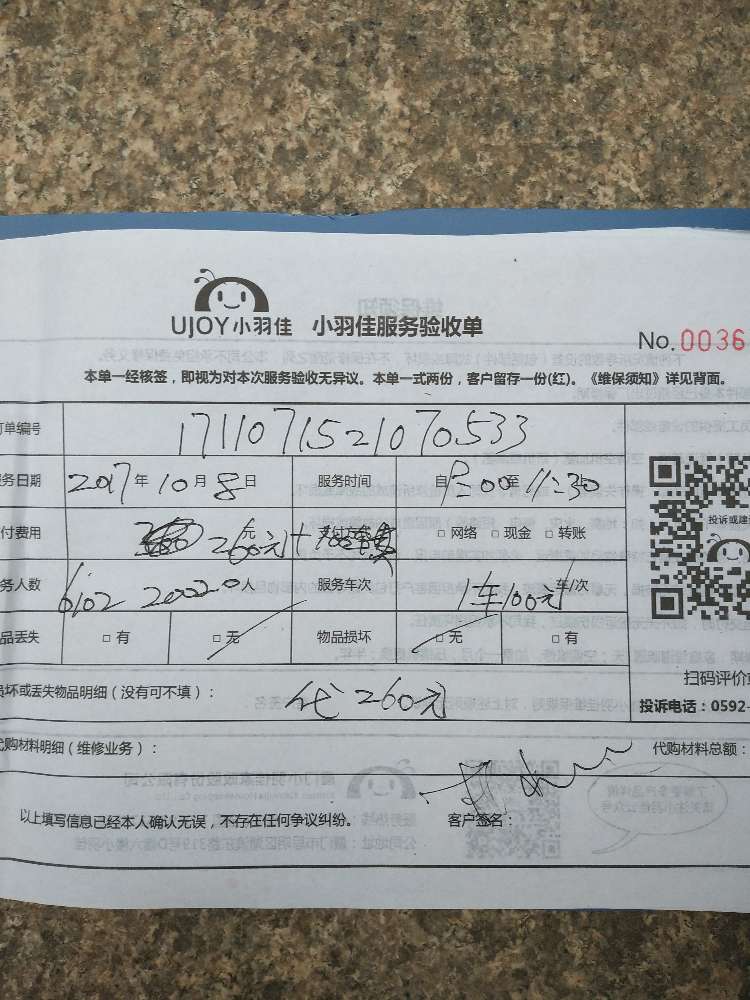 UJOY小羽佳 小羽佳服务验收单
No.0036
本单一经核签，即视为对本次服务验收无异议。本单一式两份，客户留存一份(红)。《维保须知》详见背面。
单编号 1711071521070533
务日期 2017年10月8日 服务时间 自 :00至11:30
付费用 260元+ □ 网络 □ 现金 □ 转账
投诉或建
务人数 人 服务车次 1车100元 车/次
品丢失 □ 有 □ 无 物品损坏 □ 无 □ 有
损坏或丢失物品明细（没有可不填）： 260元
扫码评价
投诉电话：0592-
代购材料明细（维修业务）： 代购材料总额：
以上填写信息已经本人确认无误，不存在任何争议纠纷。 客户签名：